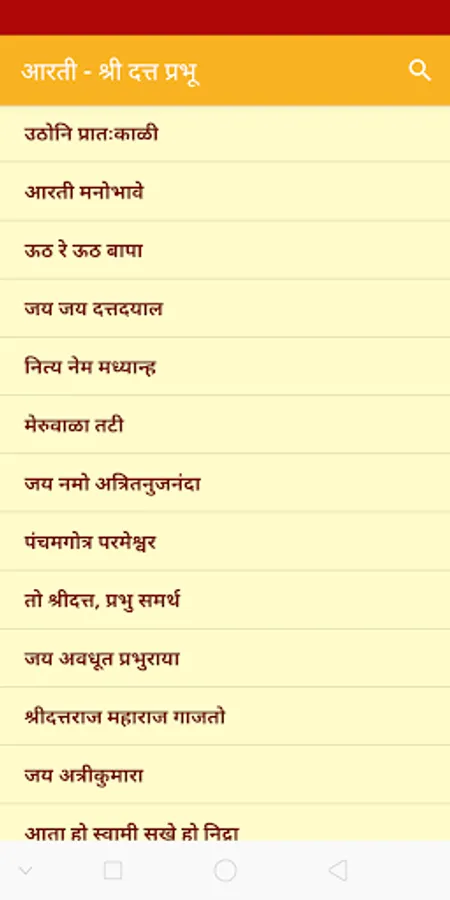 आरती - श्री दत्त प्रभू
उठोनि प्रात:काळी
आरती मनोभावे
ऊठ रे ऊठ बापा
जय जय दत्तदयाल
नित्य नेम मध्यान्ह
मेरुवाळा तटी
जय नमो अत्रितनुजनंदा
पंचमगोत्र परमेश्वर
तो श्रीदत्त, प्रभु समर्थ
जय अवधूत प्रभुराया
श्रीदत्तराज महाराज गाजतो
जय अत्रीकुमारा
आता हो स्वामी सुखे हो निद्रा